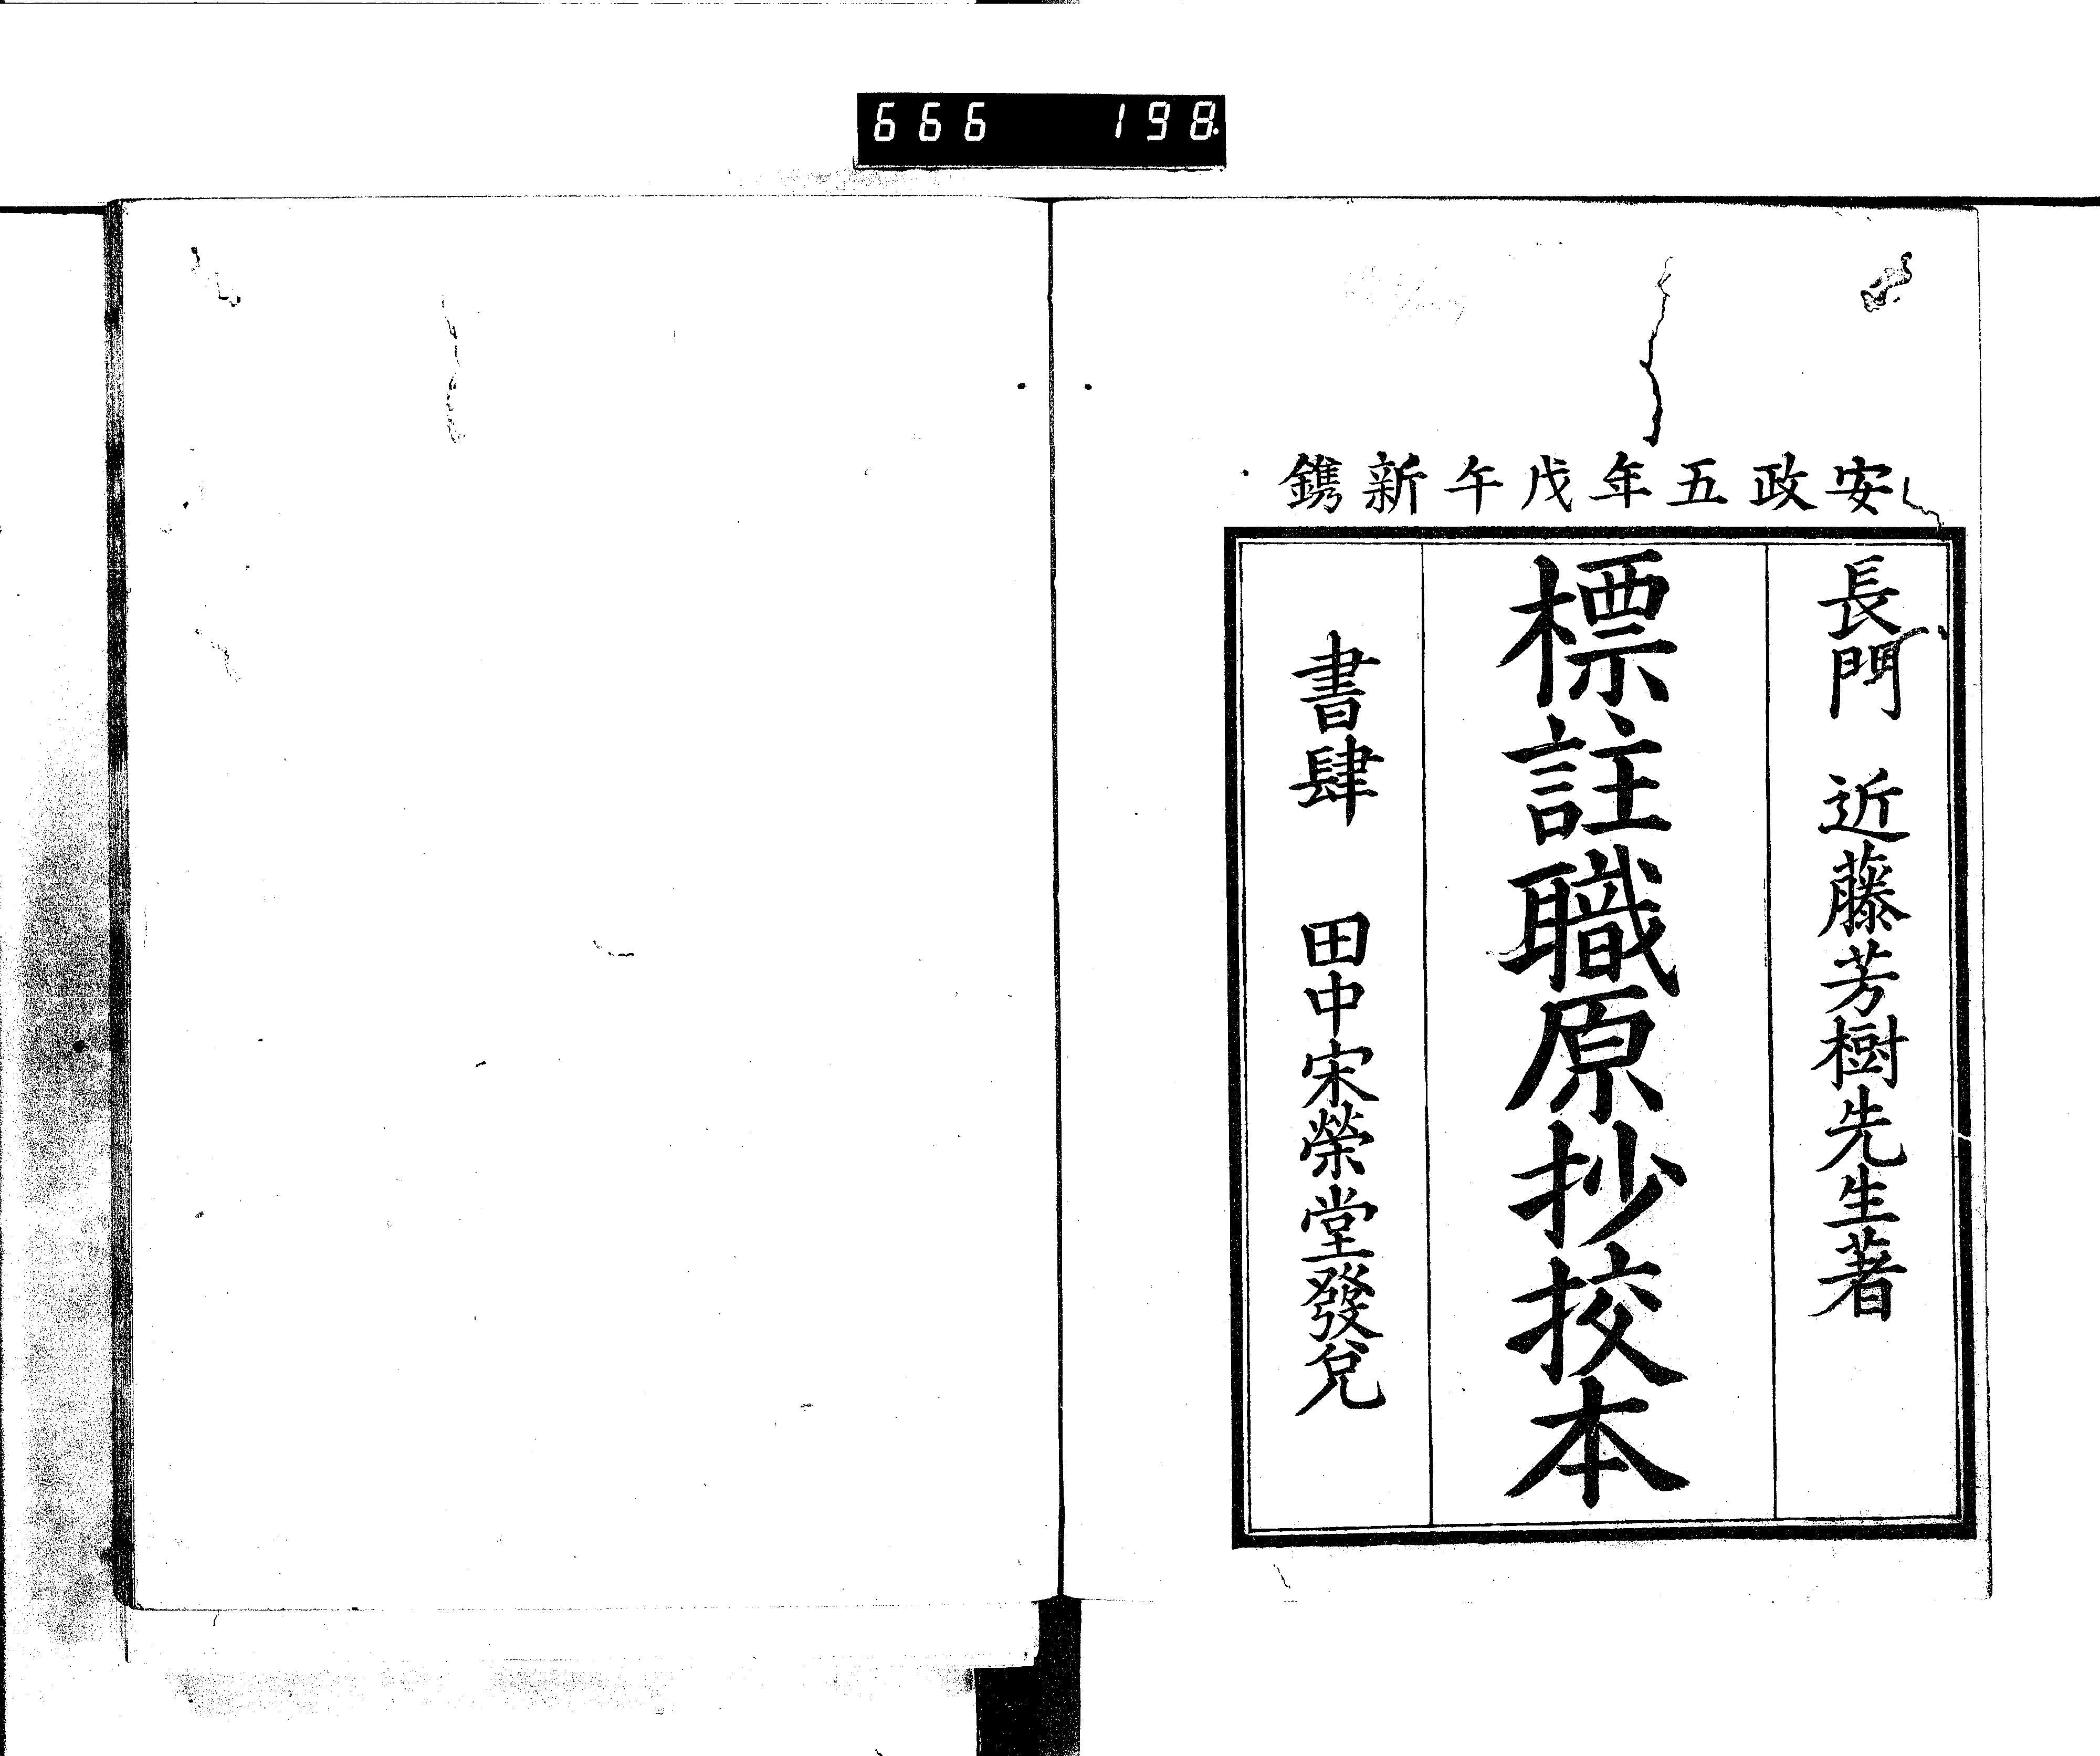 666 198
安政五年戊午新鐫
長門 近藤芳樹先生著
標註職原抄挍本
書肆 田中宋榮堂發兌